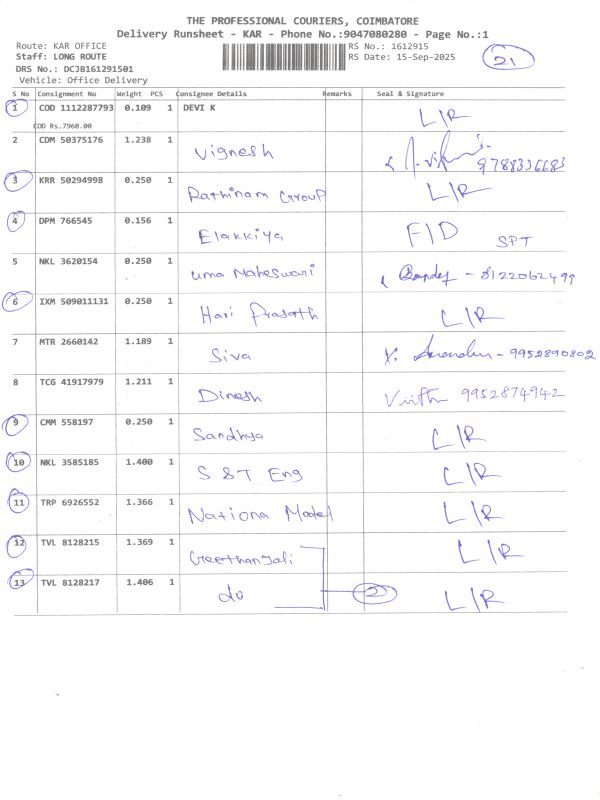 THE PROFESSIONAL COURIERS, COIMBATORE
Delivery Runsheet - KAR - Phone No.:9047080280 - Page No.:1
Route: KAR OFFICE RS No.: 1612915
Staff: LONG ROUTE RS Date: 15-Sep-2025 21
DRS No.: DCJB161291501
Vehicle: Office Delivery
S No Consignment No Weight PCS Consignee Details Remarks Seal & Signature
1 COD 1112287793 0.109 1 DEVI K L/R
COD Rs.7960.00
2 CDM 50375176 1.238 1 Vignesh 9788336683
3 KRR 50294998 0.250 1 Rathinam Group L/R
4 DPM 766545 0.156 1 Elakkiya F/D SPT
5 NKL 3620154 0.250 1 Uma Maheswari 8122062499
6 IXM 509011131 0.250 1 Hari Prasath L/R
7 MTR 2660142 1.189 1 Siva 9952890802
8 TCG 41917979 1.211 1 Dinesh 9952874942
9 CMM 558197 0.250 1 Sandhya L/R
10 NKL 3585185 1.400 1 S & T Eng L/R
11 TRP 6926552 1.366 1 Nationa Model L/R
12 TVL 8128215 1.369 1 Geethanjali L/R
13 TVL 8128217 1.406 1 do 2 L/R